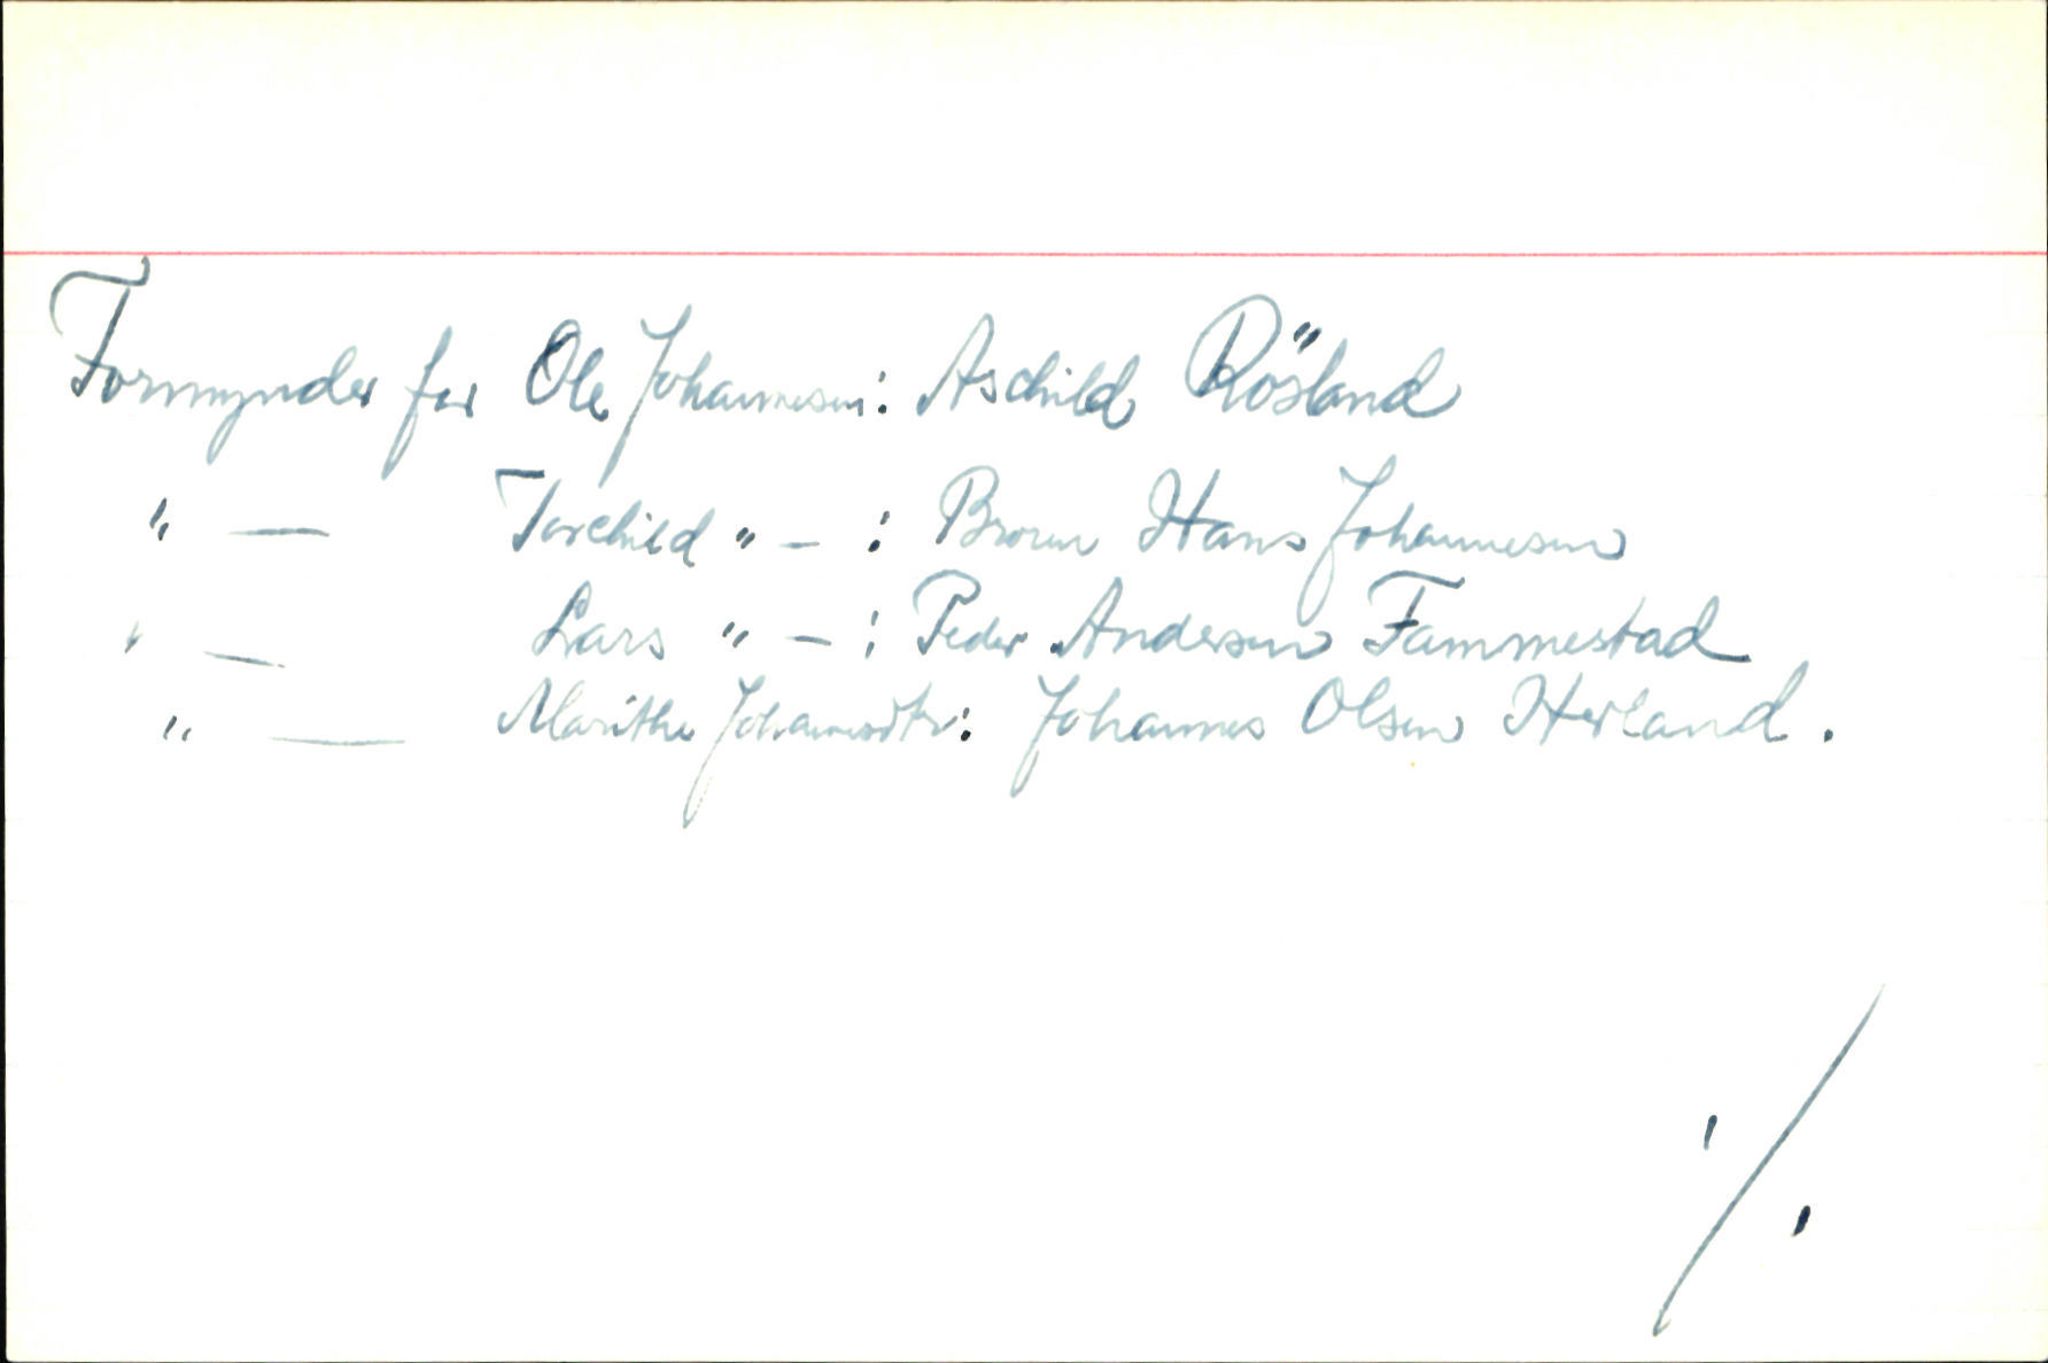 Formynder for Ole Johannesen: Aschild Rösland
" — Torchild " – : Broren Hans Johannesen
" — Lars " – : Peder Andersen Fammestad
" — Marithe Johannesdtr: Johannes Olsen Herland.
./.